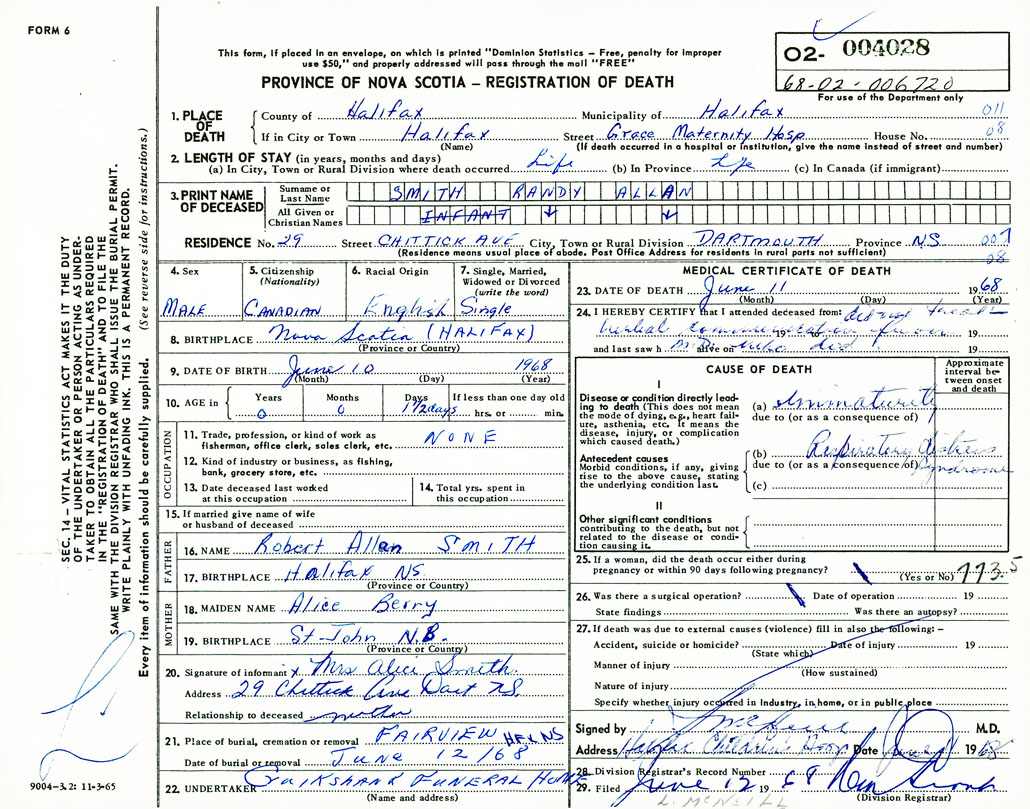 FORM 6
This form, if placed in an envelope, on which is printed "Dominion Statistics – Free, penalty for improper
use $50," and properly addressed will pass through the mail "FREE"
PROVINCE OF NOVA SCOTIA – REGISTRATION OF DEATH
02- 004028
68-02-006720
For use of the Department only
1. PLACE OF DEATH
County of Halifax Municipality of Halifax 011
If in City or Town Halifax Street Grace Maternity Hosp House No. 08
(Name) (If death occurred in a hospital or institution, give the name instead of street and number)
2. LENGTH OF STAY (in years, months and days)
(a) In City, Town or Rural Division where death occurred Life (b) In Province Life (c) In Canada (if immigrant)
3. PRINT NAME OF DECEASED
Surname or Last Name SMITH RANDY ALLAN
All Given or Christian Names INFANT
RESIDENCE No. 29 Street CHITTICK AVE City, Town or Rural Division DARTMOUTH Province NS 007
(Residence means usual place of abode. Post Office Address for residents in rural parts not sufficient) 08
4. Sex
MALE
5. Citizenship (Nationality)
CANADIAN
6. Racial Origin
English
7. Single, Married, Widowed or Divorced (write the word)
Single
8. BIRTHPLACE Nova Scotia (HALIFAX)
(Province or Country)
9. DATE OF BIRTH June 10 1968
(Month) (Day) (Year)
10. AGE in
Years Months Days If less than one day old
0 0 1 1/2 days hrs. or min.
OCCUPATION
11. Trade, profession, or kind of work as
fisherman, office clerk, sales clerk, etc. NONE
12. Kind of industry or business, as fishing,
bank, grocery store, etc.
13. Date deceased last worked
at this occupation
14. Total yrs. spent in
this occupation
15. If married give name of wife
or husband of deceased
FATHER
16. NAME Robert Allan SMITH
17. BIRTHPLACE Halifax NS.
(Province or Country)
MOTHER
18. MAIDEN NAME Alice Berry
19. BIRTHPLACE St-John N.B.
(Province or Country)
20. Signature of informant x Mrs Alice Smith
Address 29 Chittick Ave Dart NS.
Relationship to deceased mother
21. Place of burial, cremation or removal FAIRVIEW HFX NS
Date of burial or removal JUNE 12/68
22. UNDERTAKER Cruikshank FUNERAL HOME
(Name and address)
MEDICAL CERTIFICATE OF DEATH
23. DATE OF DEATH June 11 1968
(Month) (Day) (Year)
24. I HEREBY CERTIFY that I attended deceased from: did not treat
verbal communication from 19
and last saw h M.D. alive on who did. 19
CAUSE OF DEATH
Approximate interval between onset and death
I
Disease or condition directly leading to death (This does not
mean the mode of dying, e.g., heart failure, asthenia, etc. It means the
disease, injury, or complication
which caused death.)
(a) Immaturity
due to (or as a consequence of)
Antecedent causes
Morbid conditions, if any, giving
rise to the above cause, stating
the underlying condition last.
(b) Respiratory distress
due to (or as a consequence of) Syndrome
(c)
II
Other significant conditions
contributing to the death, but not
related to the disease or condition causing it.
25. If a woman, did the death occur either during
pregnancy or within 90 days following pregnancy?
(Yes or No) 773.5
26. Was there a surgical operation? Date of operation 19
State findings Was there an autopsy?
27. If death was due to external causes (violence) fill in also the following: –
Accident, suicide or homicide? Date of injury 19
(State which)
Manner of injury
(How sustained)
Nature of injury
Specify whether injury occurred in Industry, in home, or in public place
Signed by M.D.
Address Halifax Children's Hosp Date 1968
28. Division Registrar's Record Number
29. Filed June 12 1968
L. McNEILL (Division Registrar)
SEC. 14 – VITAL STATISTICS ACT MAKES IT THE DUTY
OF THE UNDERTAKER OR PERSON ACTING AS UNDER-
TAKER TO OBTAIN ALL THE PARTICULARS REQUIRED
IN THE "REGISTRATION OF DEATH" AND TO FILE THE
SAME WITH THE DIVISION REGISTRAR WHO SHALL ISSUE THE BURIAL PERMIT.
WRITE PLAINLY WITH UNFADING INK. THIS IS A PERMANENT RECORD.
Every item of information should be carefully supplied. (See reverse side for instructions.)
9004-3.2: 11-3-65